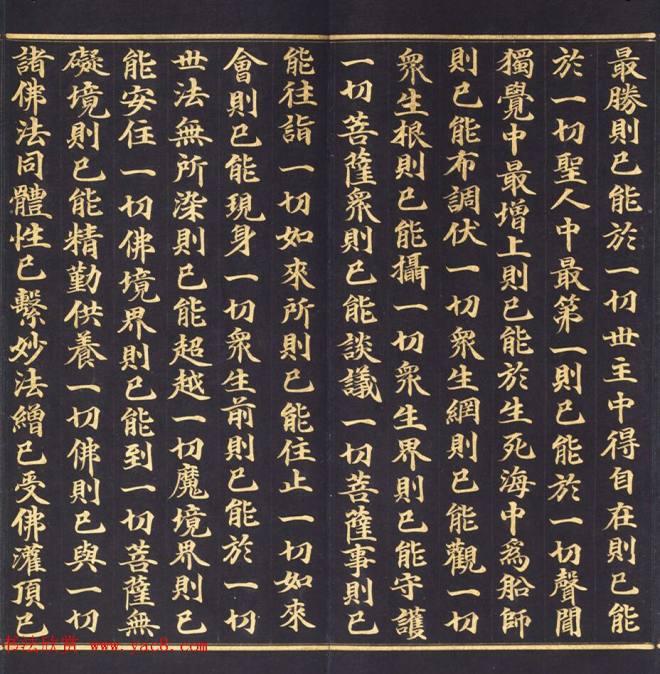 最勝則已能於一切世主中得自在則已能
於一切聖人中最第一則已能於一切聲聞
獨覺中最增上則已能於生死海中爲船師
則已能布調伏一切衆生網則已能觀一切
衆生根則已能攝一切衆生界則已能守護
一切菩薩衆則已能談議一切菩薩事則已
能往詣一切如來所則已能住止一切如來
會則已能現身一切衆生前則已能於一切
世法無所染則已能超越一切魔境界則已
能安住一切佛境界則已能到一切菩薩無
礙境則已能精勤供養一切佛則已與一切
諸佛法同體性已繫妙法繒已受佛灌頂已
书法欣赏 www.yac8.com